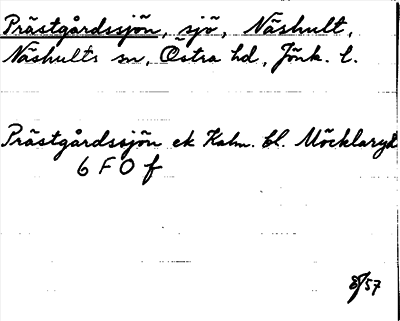 Prästgårdssjön, sjö, Näshult,
Näshults sn, Östra hd, Jönk. l.
Prästgårdssjön ek Kalm. bl. Möcklaryd
6 F 0 f
8/57